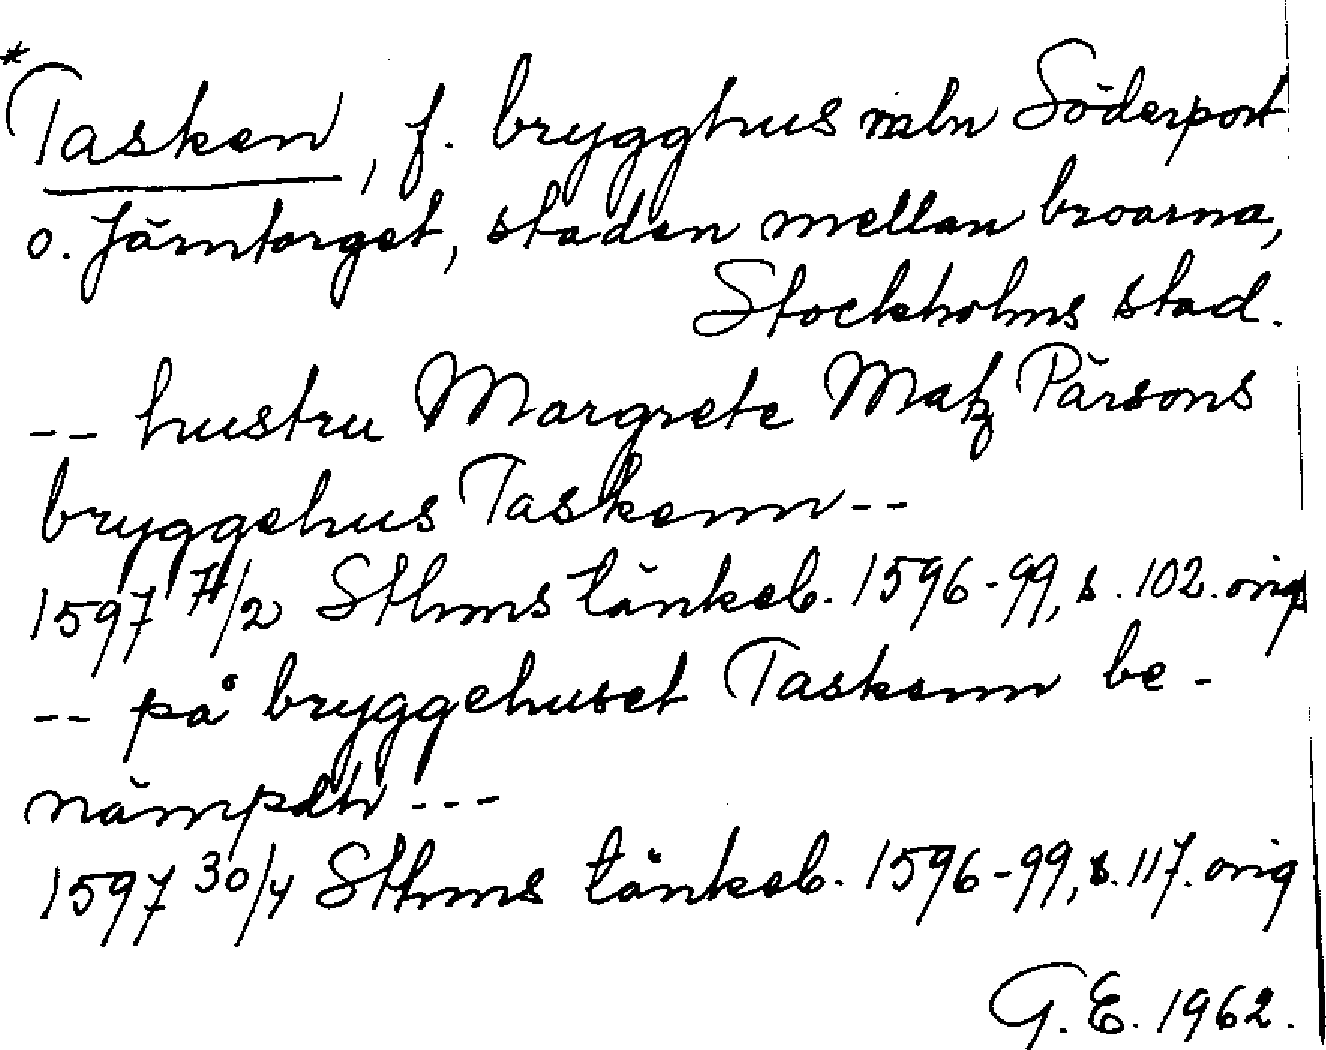 *Tasken, f. brygghus mln Söderport
o. Järntorget, staden mellan broarna,
Stockholms stad.
-- hustru Margrete Matz Pärsons
bryggehus Taskenn --
1597 7/2 Sthms tänkeb. 1596-99, s. 102. orig
-- på bryggehuset Taskenn be-
nämpdh ---
1597 30/4 Sthms tänkeb. 1596-99, s. 117. orig
G.E. 1962.